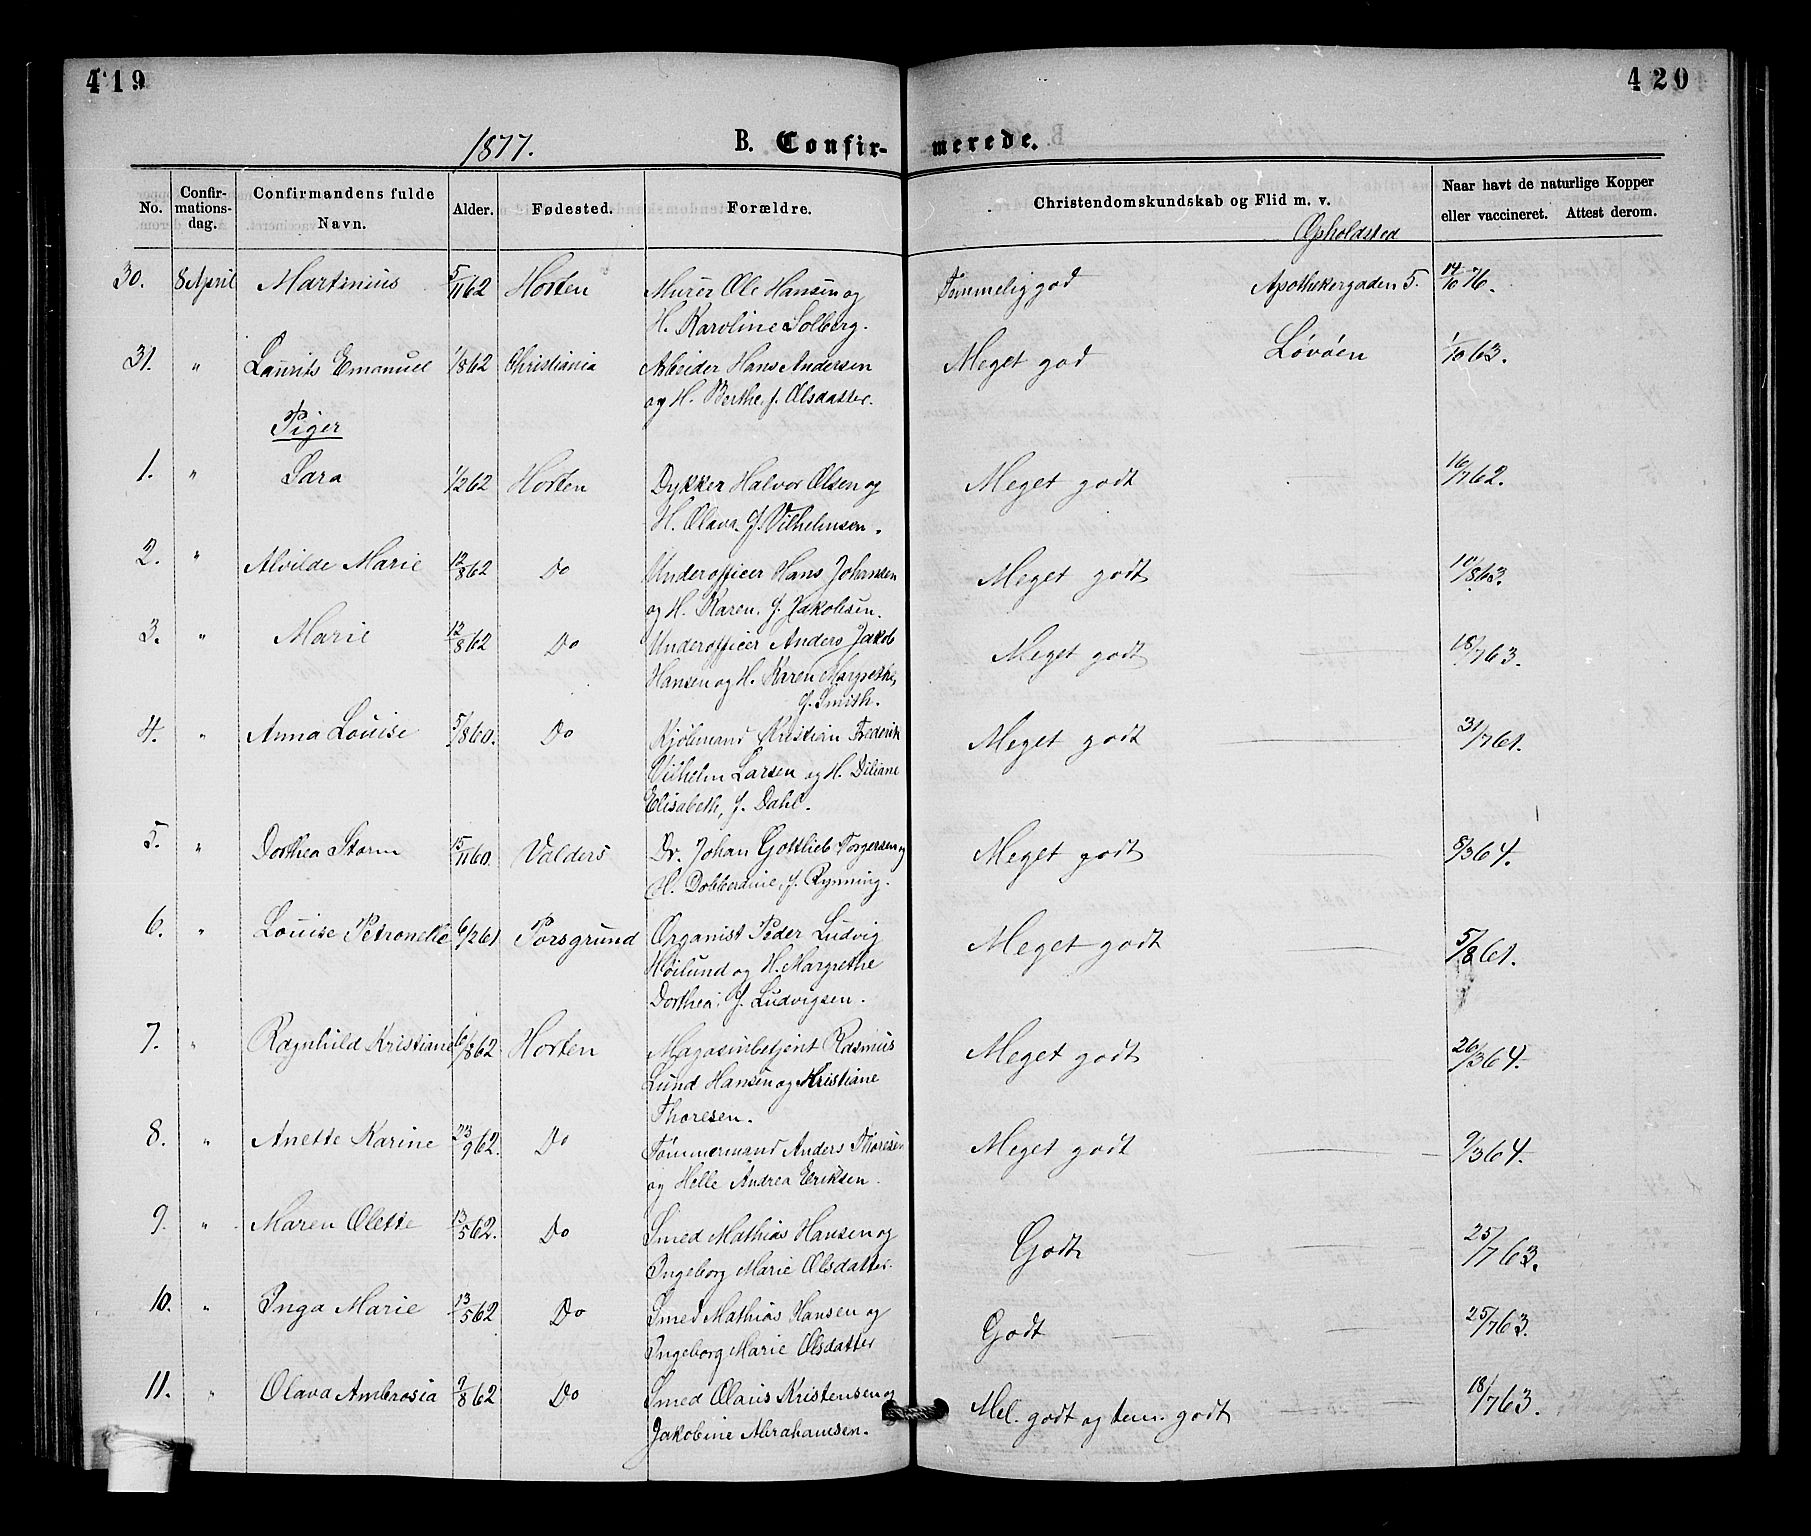 419
420
1877.
B. Confirmerede.
No.
Confirmationsdag.
Confirmandens fulde Navn.
Alder.
Fødested.
Forældre.
Christendomskundskab og Flid m. v.
Opholdsted
Naar havt de naturlige Kopper eller vaccineret. Attest derom.
30. 8 April Martinius 5/11 62 Horten Murer Ole Hansen og Temmelig god Apothekergaden 5. 14/10 76.
H. Karoline Solberg.
31. " Laurits Emanuel 1/8 62 Christiania Arbeider Hans Andersen Meget god Løvöen 1/10 63.
og H. Berthe f. Olsdatter.
Piger
1. " Sara 1/2 62 Horten Dykker Halvor Olsen og Meget godt 16/7 62.
H. Olava f. Vilhelmsen.
2. " Alvilde Marie 12/8 62 Do Underofficer Hans Johnsen Meget godt 10/8 63.
og H. Karen f. Jakobsen.
3. " Marie 12/8 62 Do Underofficer Anders Jakob Meget godt 18/7 63.
Hansen og H. Karen Margrethe,
f. Smith.
4. " Anna Louise 5/8 60. Do Kjölmand Kristian Frederik Meget godt 31/7 61.
Vilhelm Larsen og H. Diliane
Elisabeth, f. Dahl.
5. " Dorthea Storm 15/11 60. Valders Dr. Johan Gottlieb Torgersen og Meget godt 8/3 64.
H. Dobberdine, f. Rynning.
6. " Louise Petronelle 6/2 61 Porsgrund Organist Peder Ludvig Meget godt 5/8 61.
Höilund og H. Margrethe
Dorthea, f. Ludvigsen.
7. " Ragnhild Kristiane 6/8 62 Horten Magasinbetjent Rasmus Meget godt 26/3 64.
Lund Hansen og Kristiane
Thoresen.
8. " Anette Karine 23/9 62. Do Tömmermand Anders Thoresen Meget godt 9/3 64.
og Helle Andrea Eriksen.
9. " Maren Olette 13/5 62. Do Smed Mathias Hansen og Godt 25/7 63.
Ingeborg Marie Olsdatter.
10. " Inga Marie 13/5 62 Do Smed Mathias Hansen og Godt 25/7 63.
Ingeborg Marie Olsdatter
11. " Olava Ambrosia 9/8 62 Do Smed Olaus Kristensen og Mel. godt og tem. godt 18/7 63.
Jakobine Abrahamsen.